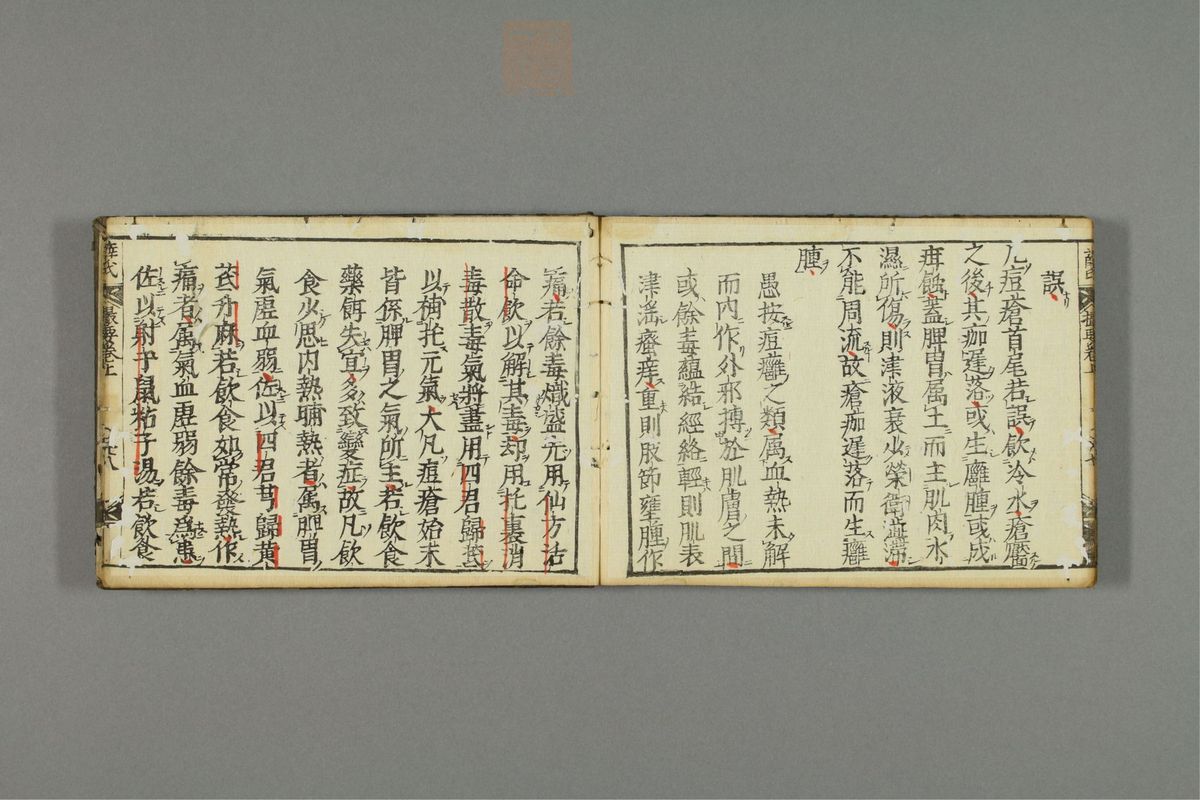 誤
凡痘瘡首尾若誤飲冷水瘡靨
之後其痂遲落或生癰腫或成
疳蝕蓋脾胃属土而主肌肉水
濕所傷則津液衰少榮衛澁滯
不能周流故瘡痂遲落而生癰
腫
愚按痘癰之類属血熱未解
而内作外邪搏於肌膚之間
或餘毒蘊結經絡輕則肌表
津滛瘡痒重則肢節壅腫作
痛若餘毒熾盛先用仙方活
命飲以解其毒却用托裏消
毒散毒氣將盡用四君歸芪
以補托元氣大凡痘瘡始末
皆係脾胃之氣所主若飲食
藥餌失宜多致變症故凡飲
食少思内熱晡熱者属脾胃
氣虚血弱佐以四君芎歸黄
芪升麻若飲食如常發熱作
痛者属氣血虚弱餘毒為患
佐以射干鼠粘子湯若飲食
薛氏 最要卷上 八